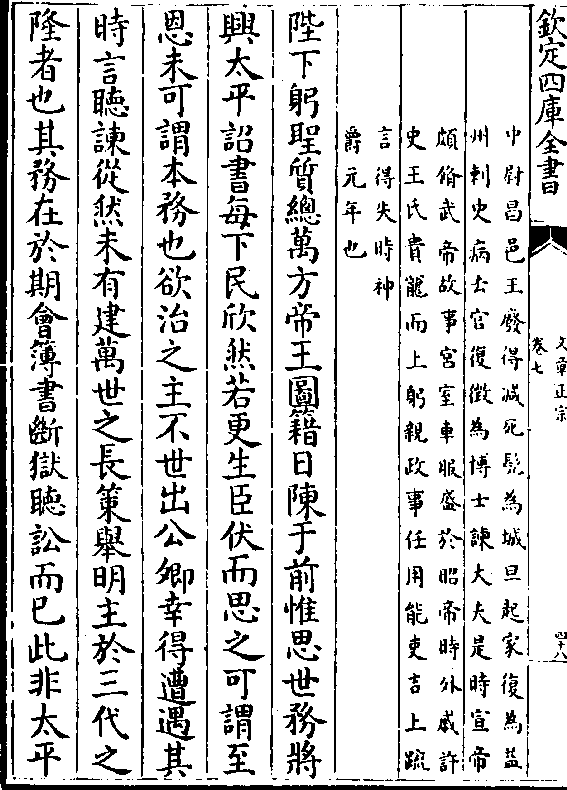 欽定四庫全書
文章正宗
卷七
四十八
中尉昌邑王廢得減死髠為城旦起家復為益
州刺史病去官復徵為博士諫大夫是時宣帝
頗脩武帝故事宮室車服盛於昭帝時外戚許
史王氏貴寵而上躬親政事任用能吏吉上䟽
言得失時神
爵元年也
陛下躬聖質總萬方帝王圖籍日陳于前惟思世務將
興太平詔書每下民欣然若更生臣伏而思之可謂至
恩未可謂本務也欲治之主不世出公卿幸得遭遇其
時言聽諫從然未有建萬世之長策舉明主於三代之
隆者也其務在於期會簿書斷獄聽訟而已此非太平